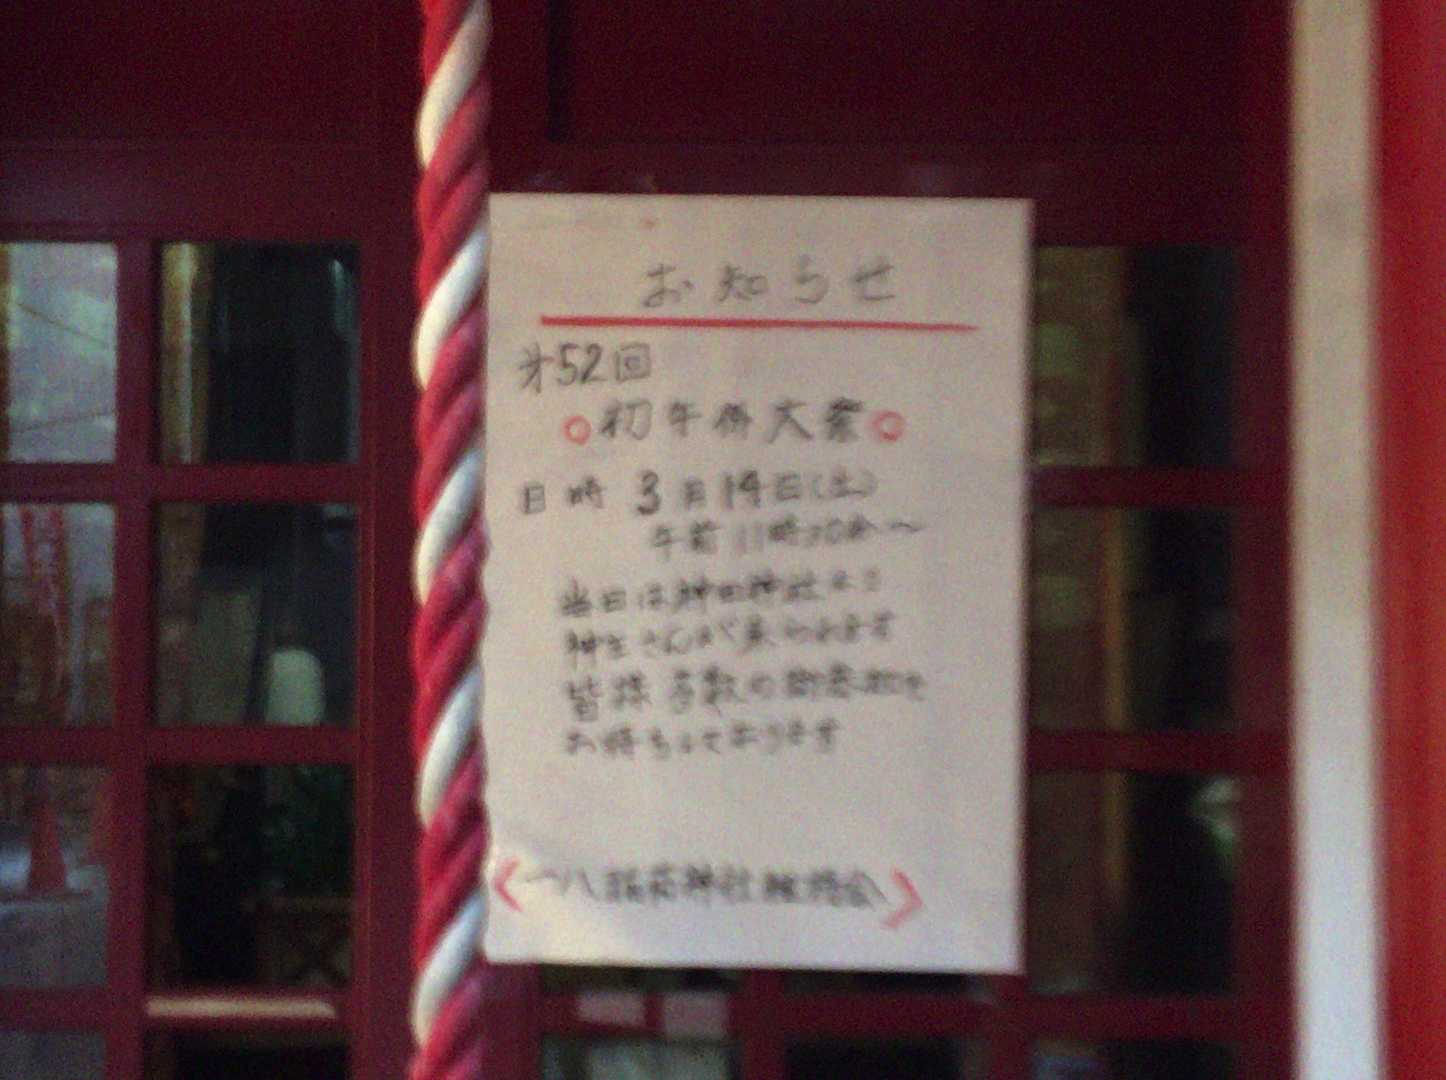 お知らせ
才52回
初午祭大祭
日時 3月14日(土)
午前11時30分～
当日は神田神社より
神主さんが来られます
皆様多数の御参加を
お待ちしております
一八稲荷神社維持会